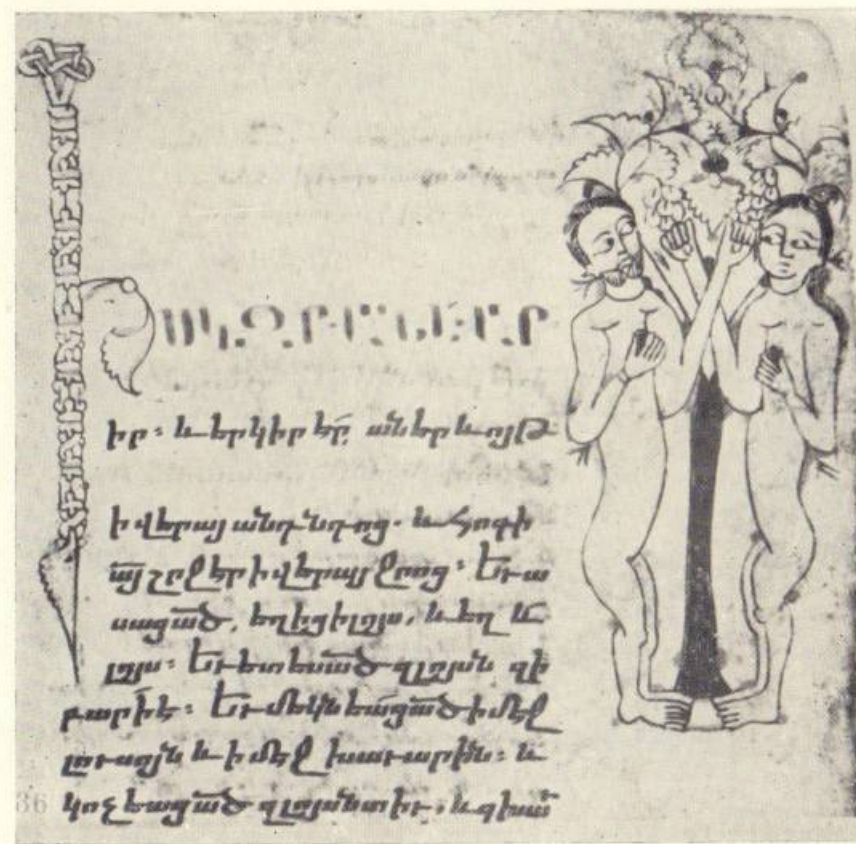 Ի ՍԿԶԲԱՆԷ ԱՐ
իր: և երկիր էր աներևոյթ
ի վերայ անդնդոց. և հոգի
այ շրջէր ի վերայ ջրոց: Եւ ա
սաց ած. եղիցի լոյս, և եղև
լոյս: Եւ ետես ած զլոյսն զի
բարի է: Եւ մեկնեաց ած ի մէջ
լուսոյն և ի մէջ խաւարին: և
36 կոչեաց ած զլոյսն տիւ, և զխաւ